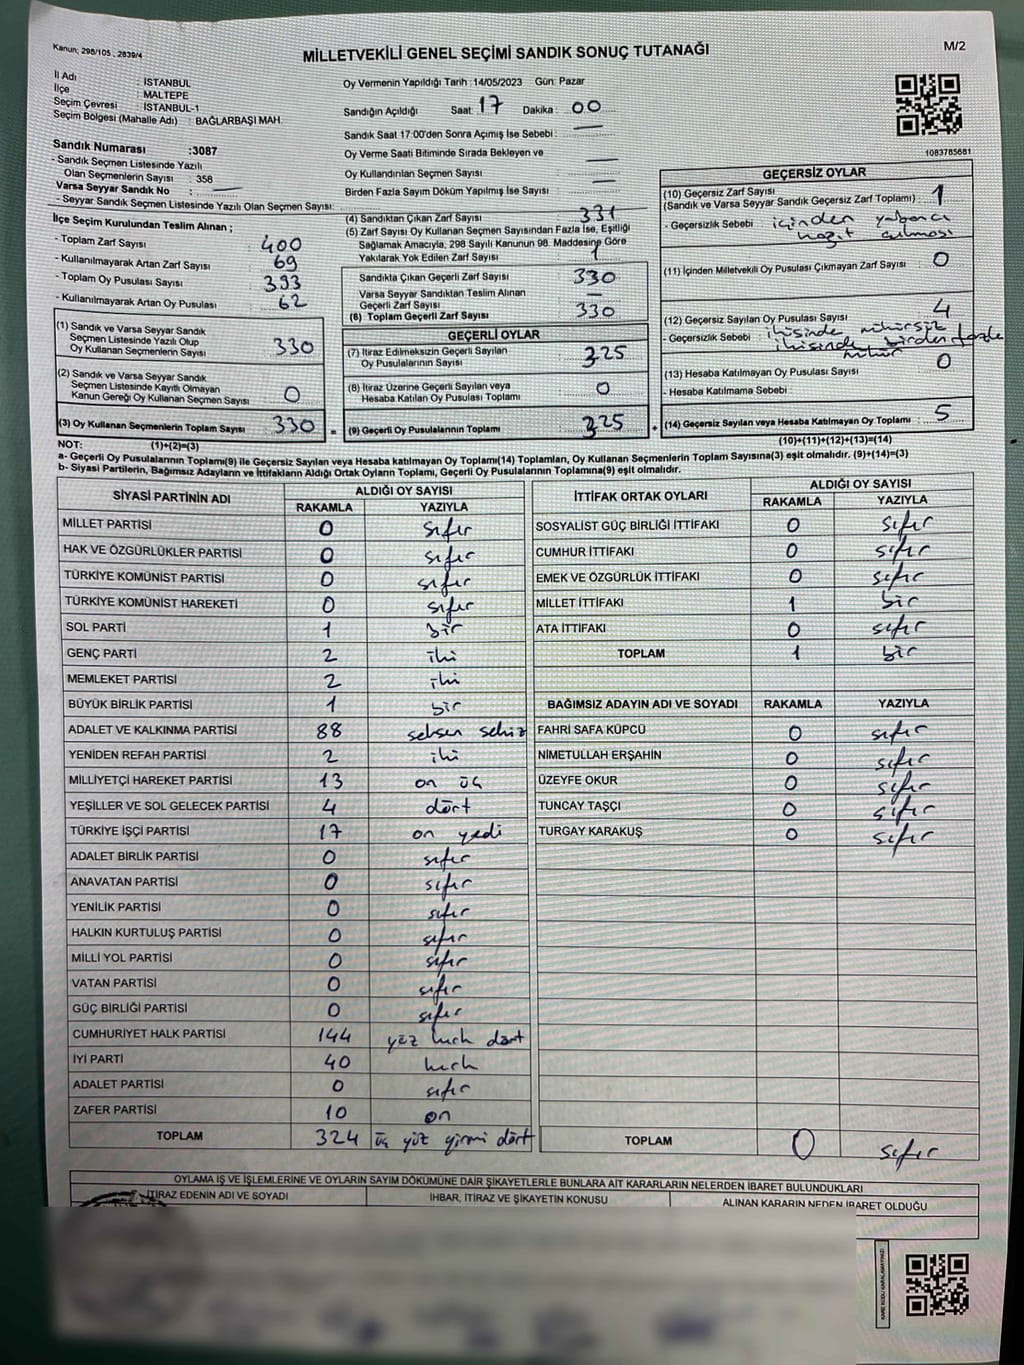 Kanun; 298/105 . 2839/4
MİLLETVEKİLİ GENEL SEÇİMİ SANDIK SONUÇ TUTANAĞI
M/2
İl Adı : İSTANBUL
İlçe : MALTEPE
Seçim Çevresi : İSTANBUL-1
Seçim Bölgesi (Mahalle Adı) : BAĞLARBAŞI MAH.
Oy Vermenin Yapıldığı Tarih :14/05/2023 Gün: Pazar
Sandığın Açıldığı Saat: 17 Dakika : 00
Sandık Saat 17:00'den Sonra Açımış İse Sebebi : —
Oy Verme Saati Bitiminde Sırada Bekleyen ve
Oy Kullandırılan Seçmen Sayısı —
Birden Fazla Sayım Döküm Yapılmış İse Sayısı : —
1083785681
Sandık Numarası :3087
- Sandık Seçmen Listesinde Yazılı
Olan Seçmenlerin Sayısı : 358
Varsa Seyyar Sandık No : —
- Seyyar Sandık Seçmen Listesinde Yazılı Olan Seçmen Sayısı:
İlçe Seçim Kurulundan Teslim Alınan ;
- Toplam Zarf Sayısı : 400
- Kullanılmayarak Artan Zarf Sayısı : 69
- Toplam Oy Pusulası Sayısı : 393
- Kullanılmayarak Artan Oy Pusulası : 62
(1) Sandık ve Varsa Seyyar Sandık
Seçmen Listesinde Yazılı Olup
Oy Kullanan Seçmenlerin Sayısı : 330
(2) Sandık ve Varsa Seyyar Sandık
Seçmen Listesinde Kayıtlı Olmayan
Kanun Gereği Oy Kullanan Seçmen Sayısı : 0
(3) Oy Kullanan Seçmenlerin Toplam Sayısı : 330
(4) Sandıktan Çıkan Zarf Sayısı : 331
(5) Zarf Sayısı Oy Kullanan Seçmen Sayısından Fazla İse, Eşitliği
Sağlamak Amacıyla, 298 Sayılı Kanunun 98. Maddesine Göre
Yakılarak Yok Edilen Zarf Sayısı : 1
Sandıkta Çıkan Geçerli Zarf Sayısı : 330
Varsa Seyyar Sandıktan Teslim Alınan
Geçerli Zarf Sayısı : —
(6) Toplam Geçerli Zarf Sayısı : 330
GEÇERLİ OYLAR
(7) İtiraz Edilmeksizin Geçerli Sayılan
Oy Pusulalarının Sayısı : 325
(8) İtiraz Üzerine Geçerli Sayılan veya
Hesaba Katılan Oy Pusulası Toplamı : 0
(9) Geçerli Oy Pusulalarının Toplamı : 325
GEÇERSİZ OYLAR
(10) Geçersiz Zarf Sayısı
(Sandık ve Varsa Seyyar Sandık Geçersiz Zarf Toplamı) : 1
- Geçersizlik Sebebi : içinden yabancı
kağıt çıkması
(11) İçinden Milletvekili Oy Pusulası Çıkmayan Zarf Sayısı : 0
(12) Geçersiz Sayılan Oy Pusulası Sayısı : 4
- Geçersizlik Sebebi : ikisinde mühürsüz
ikisinde birden fazla
mühür
(13) Hesaba Katılmayan Oy Pusulası Sayısı : 0
- Hesaba Katılmama Sebebi :
(14) Geçersiz Sayılan veya Hesaba Katılmayan Oy Toplamı : 5
NOT: (1)+(2)=(3)
(10)+(11)+(12)+(13)=(14)
a- Geçerli Oy Pusulalarının Toplamı(9) ile Geçersiz Sayılan veya Hesaba katılmayan Oy Toplamı(14) Toplamları, Oy Kullanan Seçmenlerin Toplam Sayısına(3) eşit olmalıdır. (9)+(14)=(3)
b- Siyasi Partilerin, Bağımsız Adayların ve İttifakların Aldığı Ortak Oyların Toplamı, Geçerli Oy Pusulalarının Toplamına(9) eşit olmalıdır.
SİYASİ PARTİNİN ADI ALDIĞI OY SAYISI
RAKAMLA YAZIYLA
MİLLET PARTİSİ 0 sıfır
HAK VE ÖZGÜRLÜKLER PARTİSİ 0 sıfır
TÜRKİYE KOMÜNİST PARTİSİ 0 sıfır
TÜRKİYE KOMÜNİST HAREKETİ 0 sıfır
SOL PARTİ 1 bir
GENÇ PARTİ 2 iki
MEMLEKET PARTİSİ 2 iki
BÜYÜK BİRLİK PARTİSİ 1 bir
ADALET VE KALKINMA PARTİSİ 88 seksen sekiz
YENİDEN REFAH PARTİSİ 2 iki
MİLLİYETÇİ HAREKET PARTİSİ 13 on üç
YEŞİLLER VE SOL GELECEK PARTİSİ 4 dört
TÜRKİYE İŞÇİ PARTİSİ 17 on yedi
ADALET BİRLİK PARTİSİ 0 sıfır
ANAVATAN PARTİSİ 0 sıfır
YENİLİK PARTİSİ 0 sıfır
HALKIN KURTULUŞ PARTİSİ 0 sıfır
MİLLİ YOL PARTİSİ 0 sıfır
VATAN PARTİSİ 0 sıfır
GÜÇ BİRLİĞİ PARTİSİ 0 sıfır
CUMHURİYET HALK PARTİSİ 144 yüz kırk dört
İYİ PARTİ 40 kırk
ADALET PARTİSİ 0 sıfır
ZAFER PARTİSİ 10 on
TOPLAM 324 üç yüz yirmi dört
İTTİFAK ORTAK OYLARI ALDIĞI OY SAYISI
RAKAMLA YAZIYLA
SOSYALİST GÜÇ BİRLİĞİ İTTİFAKI 0 sıfır
CUMHUR İTTİFAKI 0 sıfır
EMEK VE ÖZGÜRLÜK İTTİFAKI 0 sıfır
MİLLET İTTİFAKI 1 bir
ATA İTTİFAKI 0 sıfır
TOPLAM 1 bir
BAĞIMSIZ ADAYIN ADI VE SOYADI RAKAMLA YAZIYLA
FAHRİ SAFA KÜPCÜ 0 sıfır
NİMETULLAH ERŞAHİN 0 sıfır
ÜZEYFE OKUR 0 sıfır
TUNCAY TAŞÇI 0 sıfır
TURGAY KARAKUŞ 0 sıfır
TOPLAM 0 sıfır
OYLAMA İŞ VE İŞLEMLERİNE VE OYLARIN SAYIM DÖKÜMÜNE DAİR ŞİKAYETLERLE BUNLARA AİT KARARLARIN NELERDEN İBARET BULUNDUKLARI
İTİRAZ EDENİN ADI VE SOYADI İHBAR, İTİRAZ VE ŞİKAYETİN KONUSU ALINAN KARARIN NEDEN İBARET OLDUĞU
KARE KODU KARALAMAYINIZ!